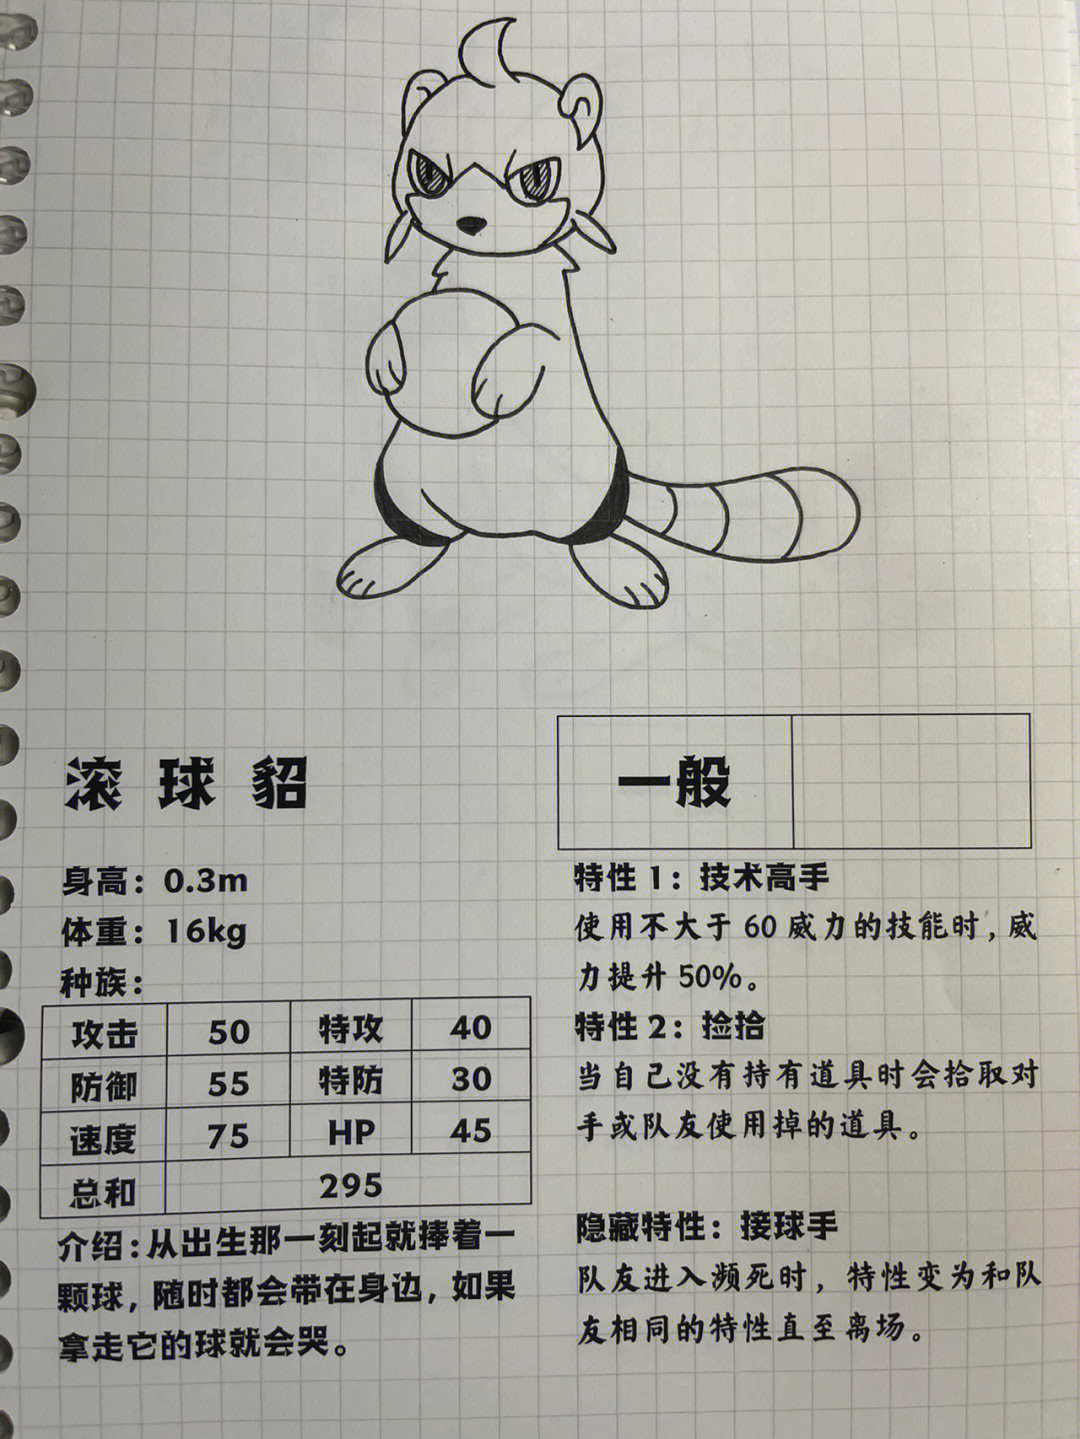 滚球貂
一般
身高：0.3m
体重：16kg
种族：
攻击 50 特攻 40
防御 55 特防 30
速度 75 HP 45
总和 295
介绍：从出生那一刻起就捧着一
颗球，随时都会带在身边，如果
拿走它的球就会哭。
特性 1：技术高手
使用不大于 60 威力的技能时，威
力提升 50%。
特性 2：捡拾
当自己没有持有道具时会拾取对
手或队友使用掉的道具。
隐藏特性：接球手
队友进入濒死时，特性变为和队
友相同的特性直至离场。